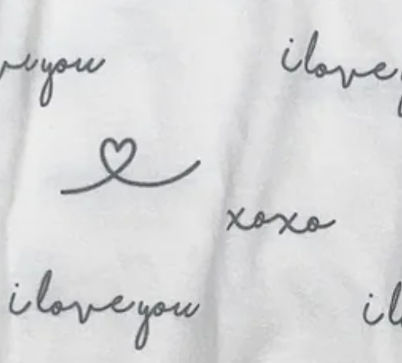 you
i love
xoxo
i love you